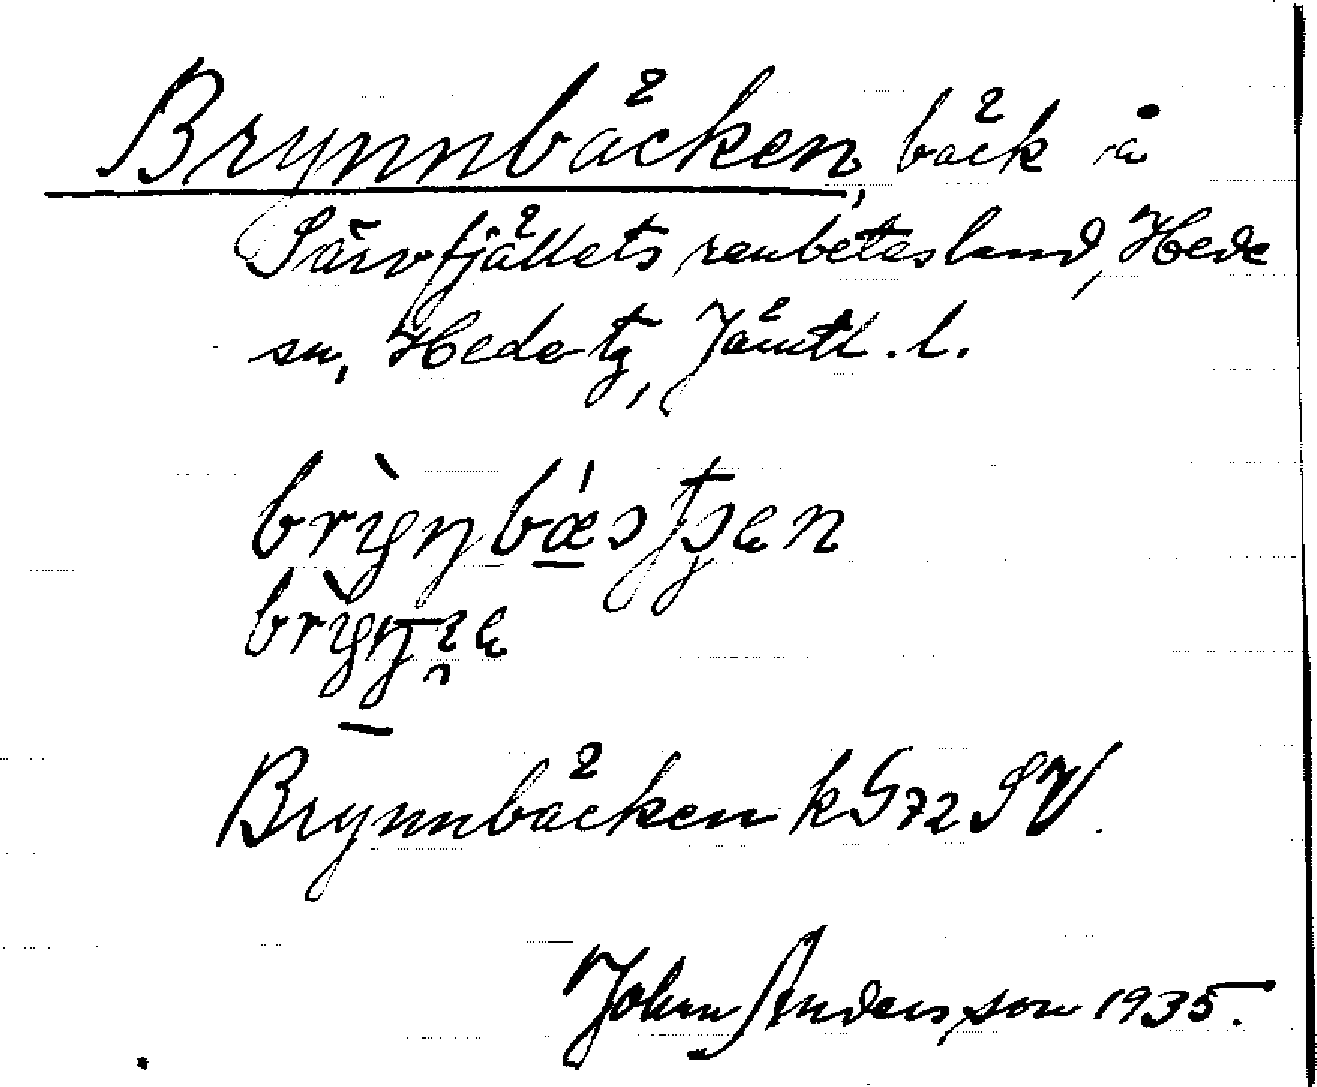 Brynnbäcken, bäck å
Särvfjällets renbetesland, Hede
sn, Hede tg, Jämtl. l.
Brynnbäcken kG72 SV.
John Andersson 1935.